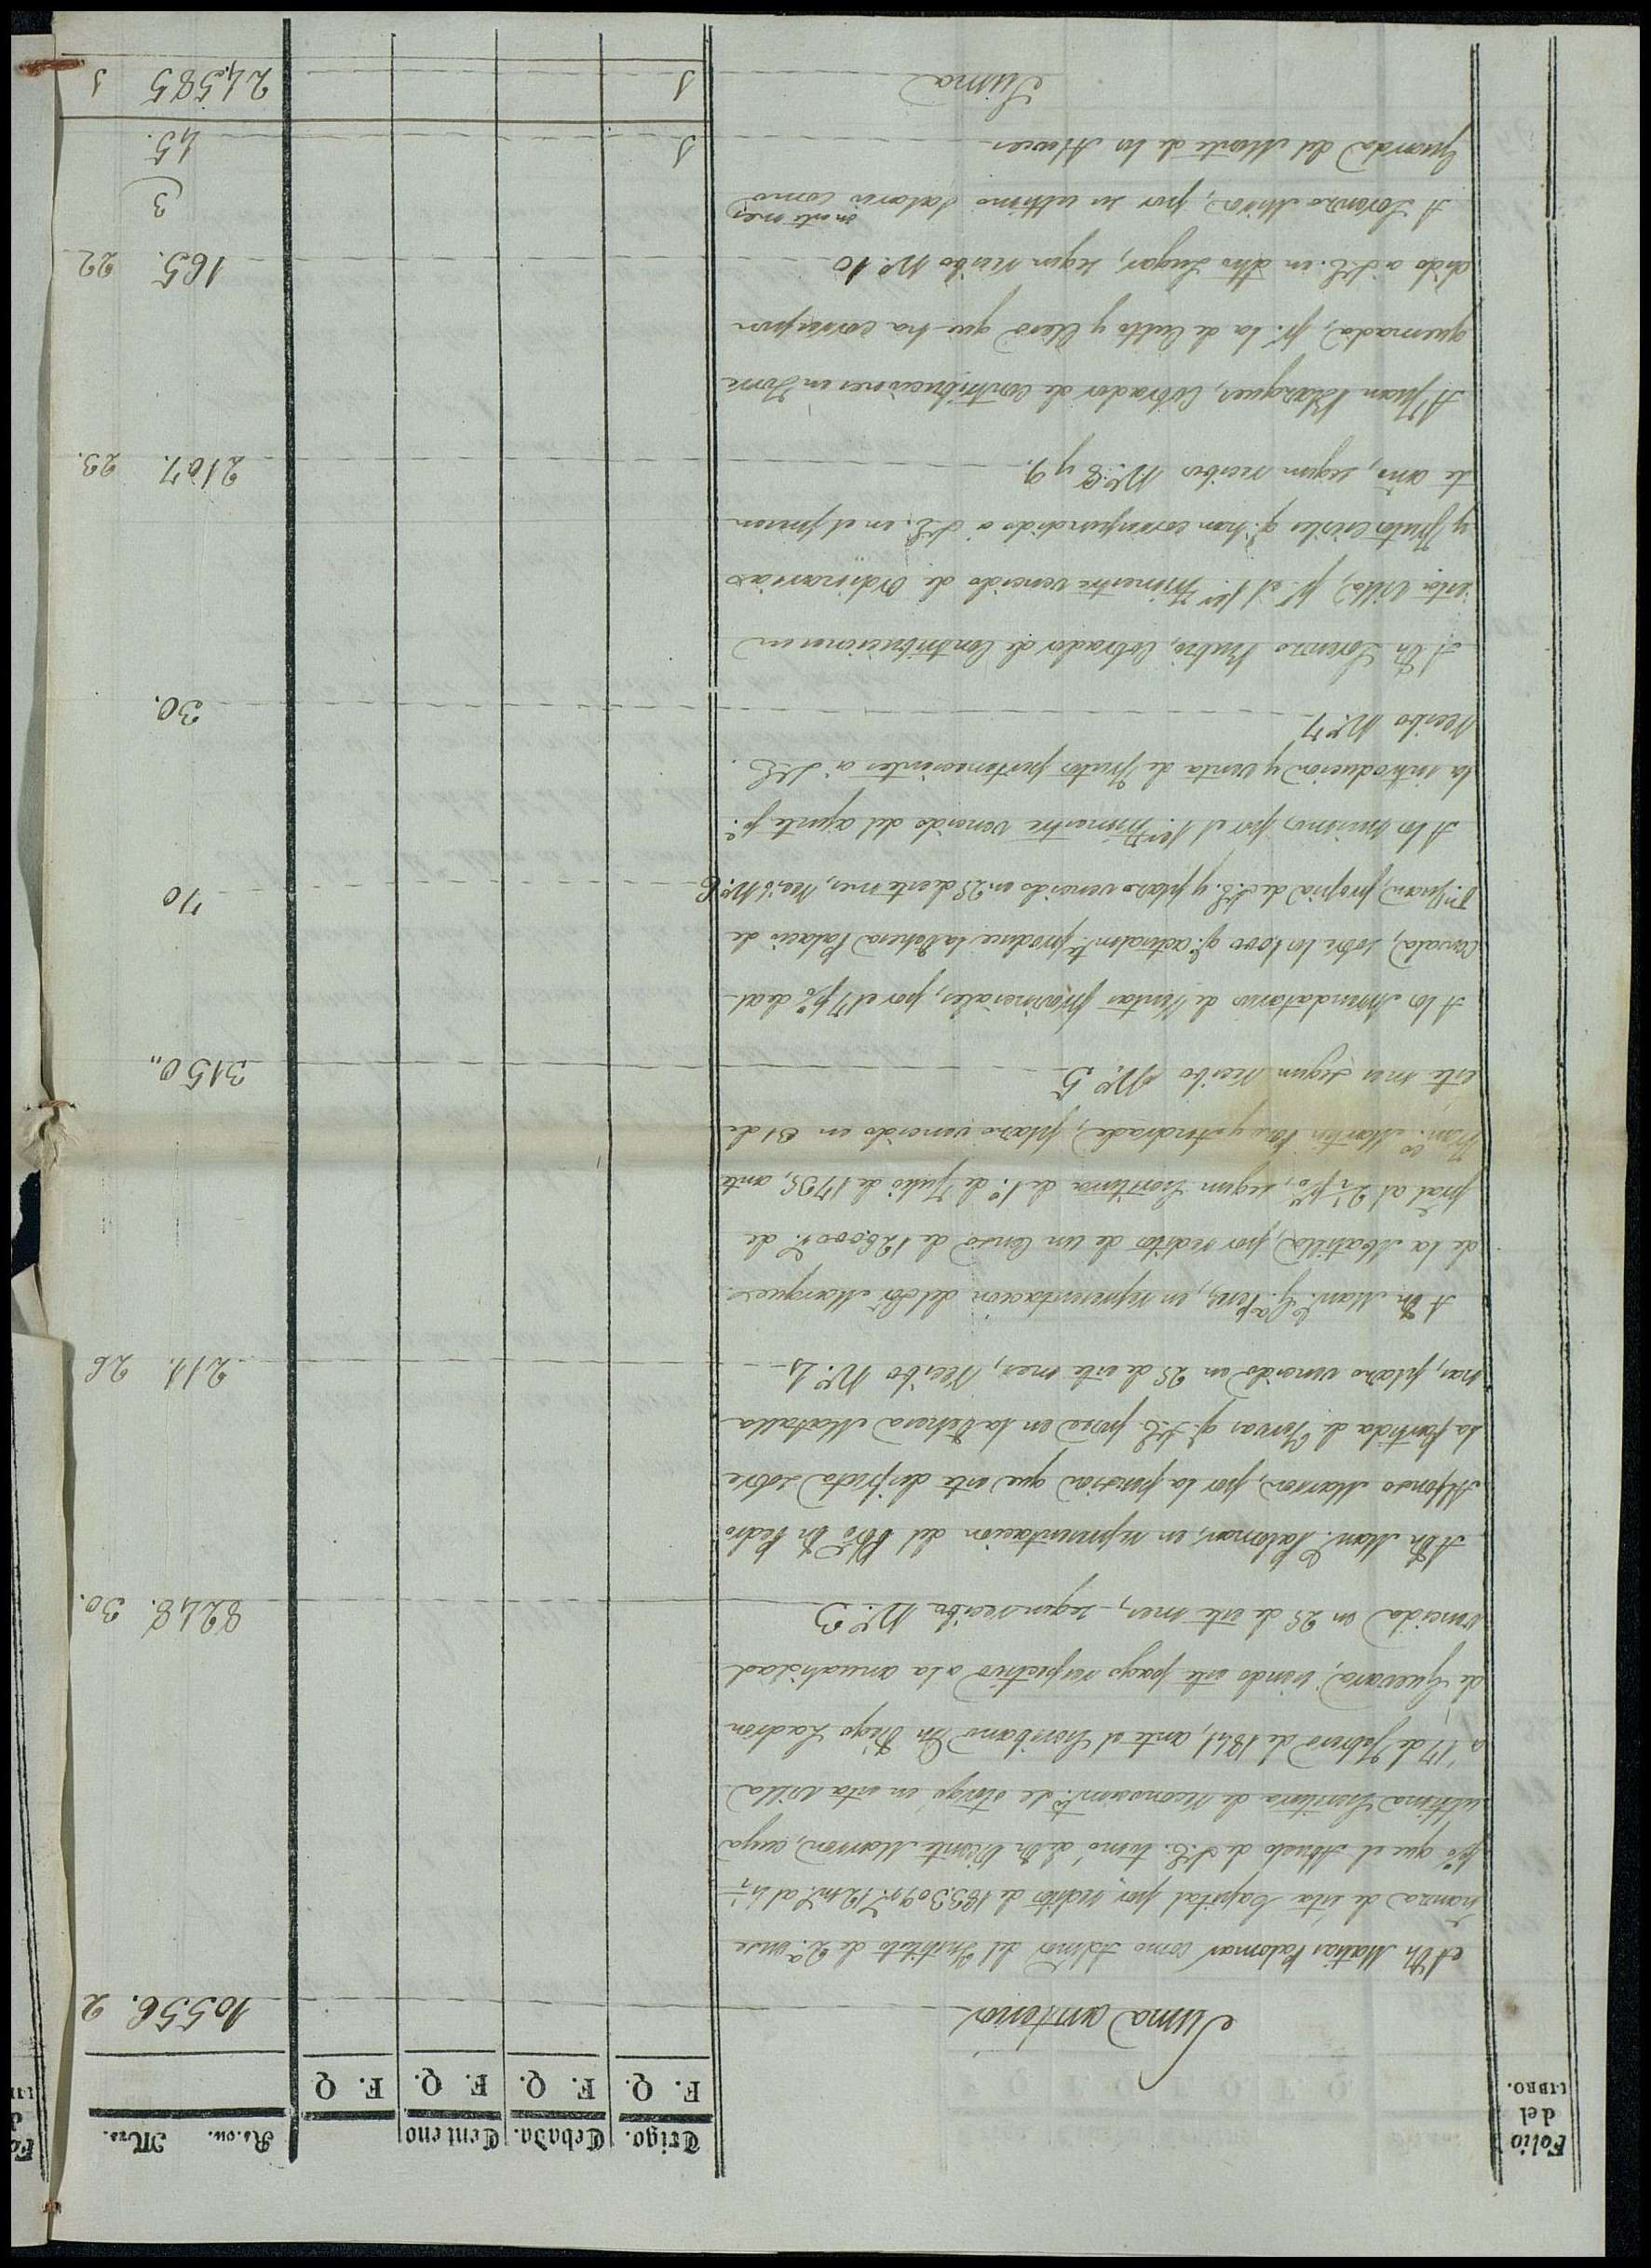 Folio
del
LIBRO.
Trigo. Cebada. Centeno Rs. vn. Mrs.
F. Q. F. Q. F. Q. F. Q
Suma anterior 10556. 2
A Dn Matias Palomar como Admor del Instituto de 2.ª ense
nanza de esta Capital por reditos de 183.309 rs. 12 ms. al 4½
p% que el Abuelo de S.E. tomó á Dn Vicente Marron, cuya
ultima Escritura de reconocimto. se otorgó en esta Villa
a 17 de Febrero de 1841, ante el Escribano Dn Diego Ladron
de Guevara; siendo este pago respectivo a la anualidad
vencida en 28 de este mes, segun recibo Nº. 3 8248. 30.
A Dn Manl. Palomar, en representacion del Pbro Dn Pedro
Alfonso Marron, por la pension que este disfruta sobre
la partida de Yervas q. S.E. posee en la Dehesa Matalla
nas, plazo vencido en 28 de este mes, Recibo Nº. 4 211. 26
A Dn Manl. Gª. Perez, en representacion del Sor Marques
de la Matilla, por reditos de un Censo de 126000 rs. de
pral al 2½ p%, segun Escritura de 1.º de Julio de 1798, ante
Franco. Martin Paz y Andrade, plazo vencido en 31 de
este mes segun recibo Nº. 5 3150,,
A los Arrendatarios de Rentas Provinciales, por el 7 p% de al
cavala, sobre los 1,000 q. actualmte. produce la Dehesa Palacio de
Dn. Juan, propia de S.E. y plazo vencido en 28 de este mes, Recibo Nº. 6 70
A los mismos, por el 1er. Trimestre vencido del ajuste pr.
la introduccion y venta de Frutos pertenecientes a S.E.
Recibo Nº. 7 30.
A Dn Lorenzo Rubio, Cobrador de Contribuciones en
esta Villa, pr. el 1er Trimestre vencido de Ordinarias
y Frutos Civiles q. han correspondido a S.E. en el presen
te año, segun recibos Nº. 8 y 9. 2107. 23.
A Juan Blazquez, Cobrador de Contribuciones en Torre
quemada, pr. la de Culto y Clero que ha correspon
dido a S.E. en dho Lugar, segun recibo Nº. 10 165. 22
A Lorenzo Mira, por su ultimo Salario en este mes como 3
Guarda del Monte de los Alexes 1 45.
Suma 1 24,585 1